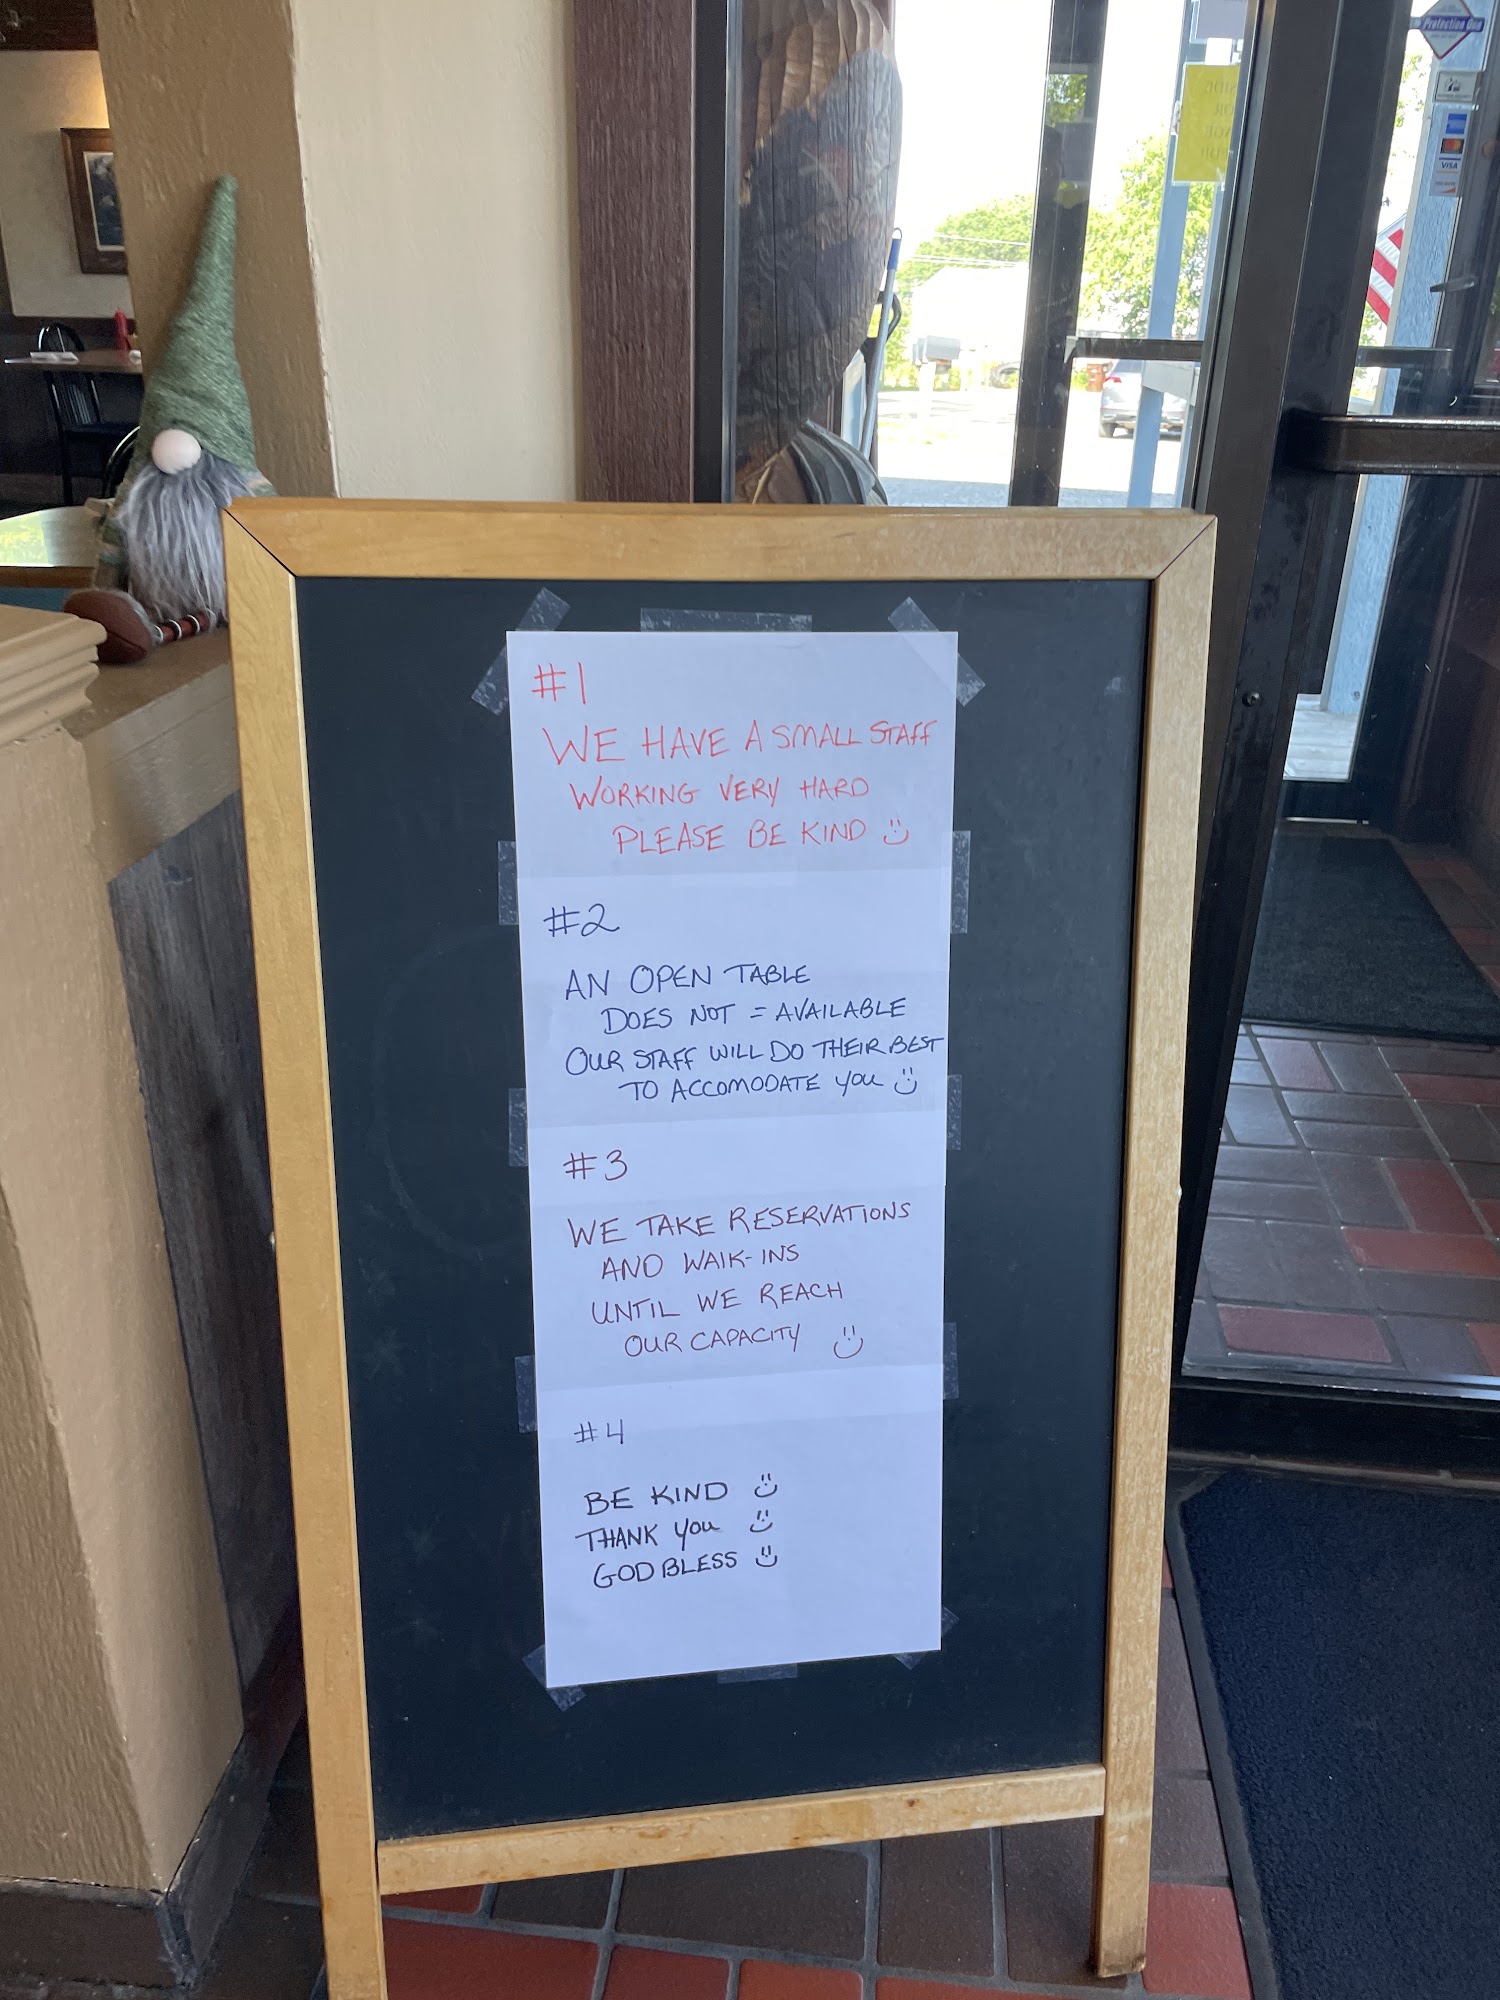 Protection One
VISA
#1
WE HAVE A SMALL STAFF
WORKING VERY HARD
PLEASE BE KIND
#2
AN OPEN TABLE
DOES NOT = AVAILABLE
OUR STAFF WILL DO THEIR BEST
TO ACCOMODATE YOU
#3
WE TAKE RESERVATIONS
AND WALK-INS
UNTIL WE REACH
OUR CAPACITY
#4
BE KIND
THANK YOU
GOD BLESS